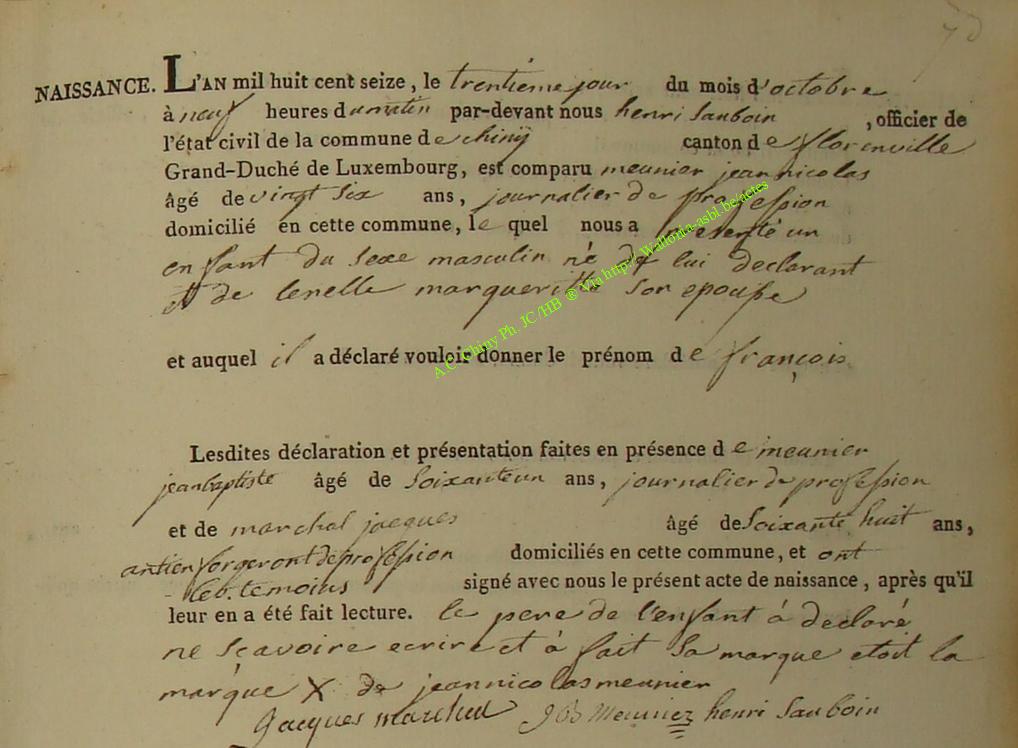 NAISSANCE. L'AN mil huit cent seize, le trentieme jour du mois d'octobre
à neuf heures du matin par-devant nous henri sauboin, officier de
l'état civil de la commune de chiny canton de florenville
Grand-Duché de Luxembourg, est comparu meunier jean nicolas
âgé de vingt six ans, journalier de profession
domicilié en cette commune, le quel nous a presenté un
enfant du sexe masculin né de lui declarant
et de lenelle margueritte son epouse
et auquel il a déclaré vouloir donner le prénom de françois
A.C. Chiny Ph. JC /HB ® Via http://.Wallonia-asbl.be/actes
Lesdites déclaration et présentation faites en présence de meunier
jean baptiste âgé de soixante un ans, journalier de profession
et de marchal jacques âgé de soixante huit ans,
antien forgeront de profession domiciliés en cette commune, et ont
temoins signé avec nous le présent acte de naissance, après qu'il
leur en a été fait lecture. le pere de l'enfant à declaré
ne sçavoire ecrire et à fait sa marque etoit la
marque X de jean nicolas meunier
Jacques marchal JB Meunier henri sauboin